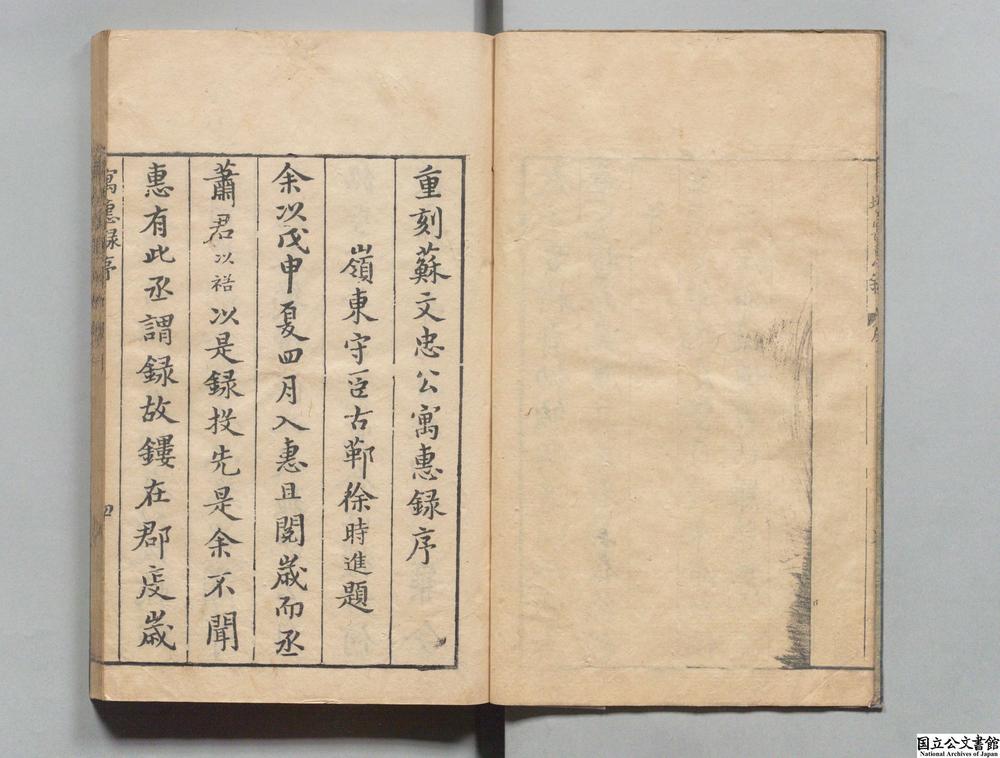 重刻蘇文忠公寓惠録序
嶺東守臣古鄞徐時進題
余以戊申夏四月入惠且閱歲而丞
蕭君以裕以是録投先是余不聞
惠有此丞謂録故鏤在郡庋歲
寓惠録序
四
国立公文書館
National Archives of Japan